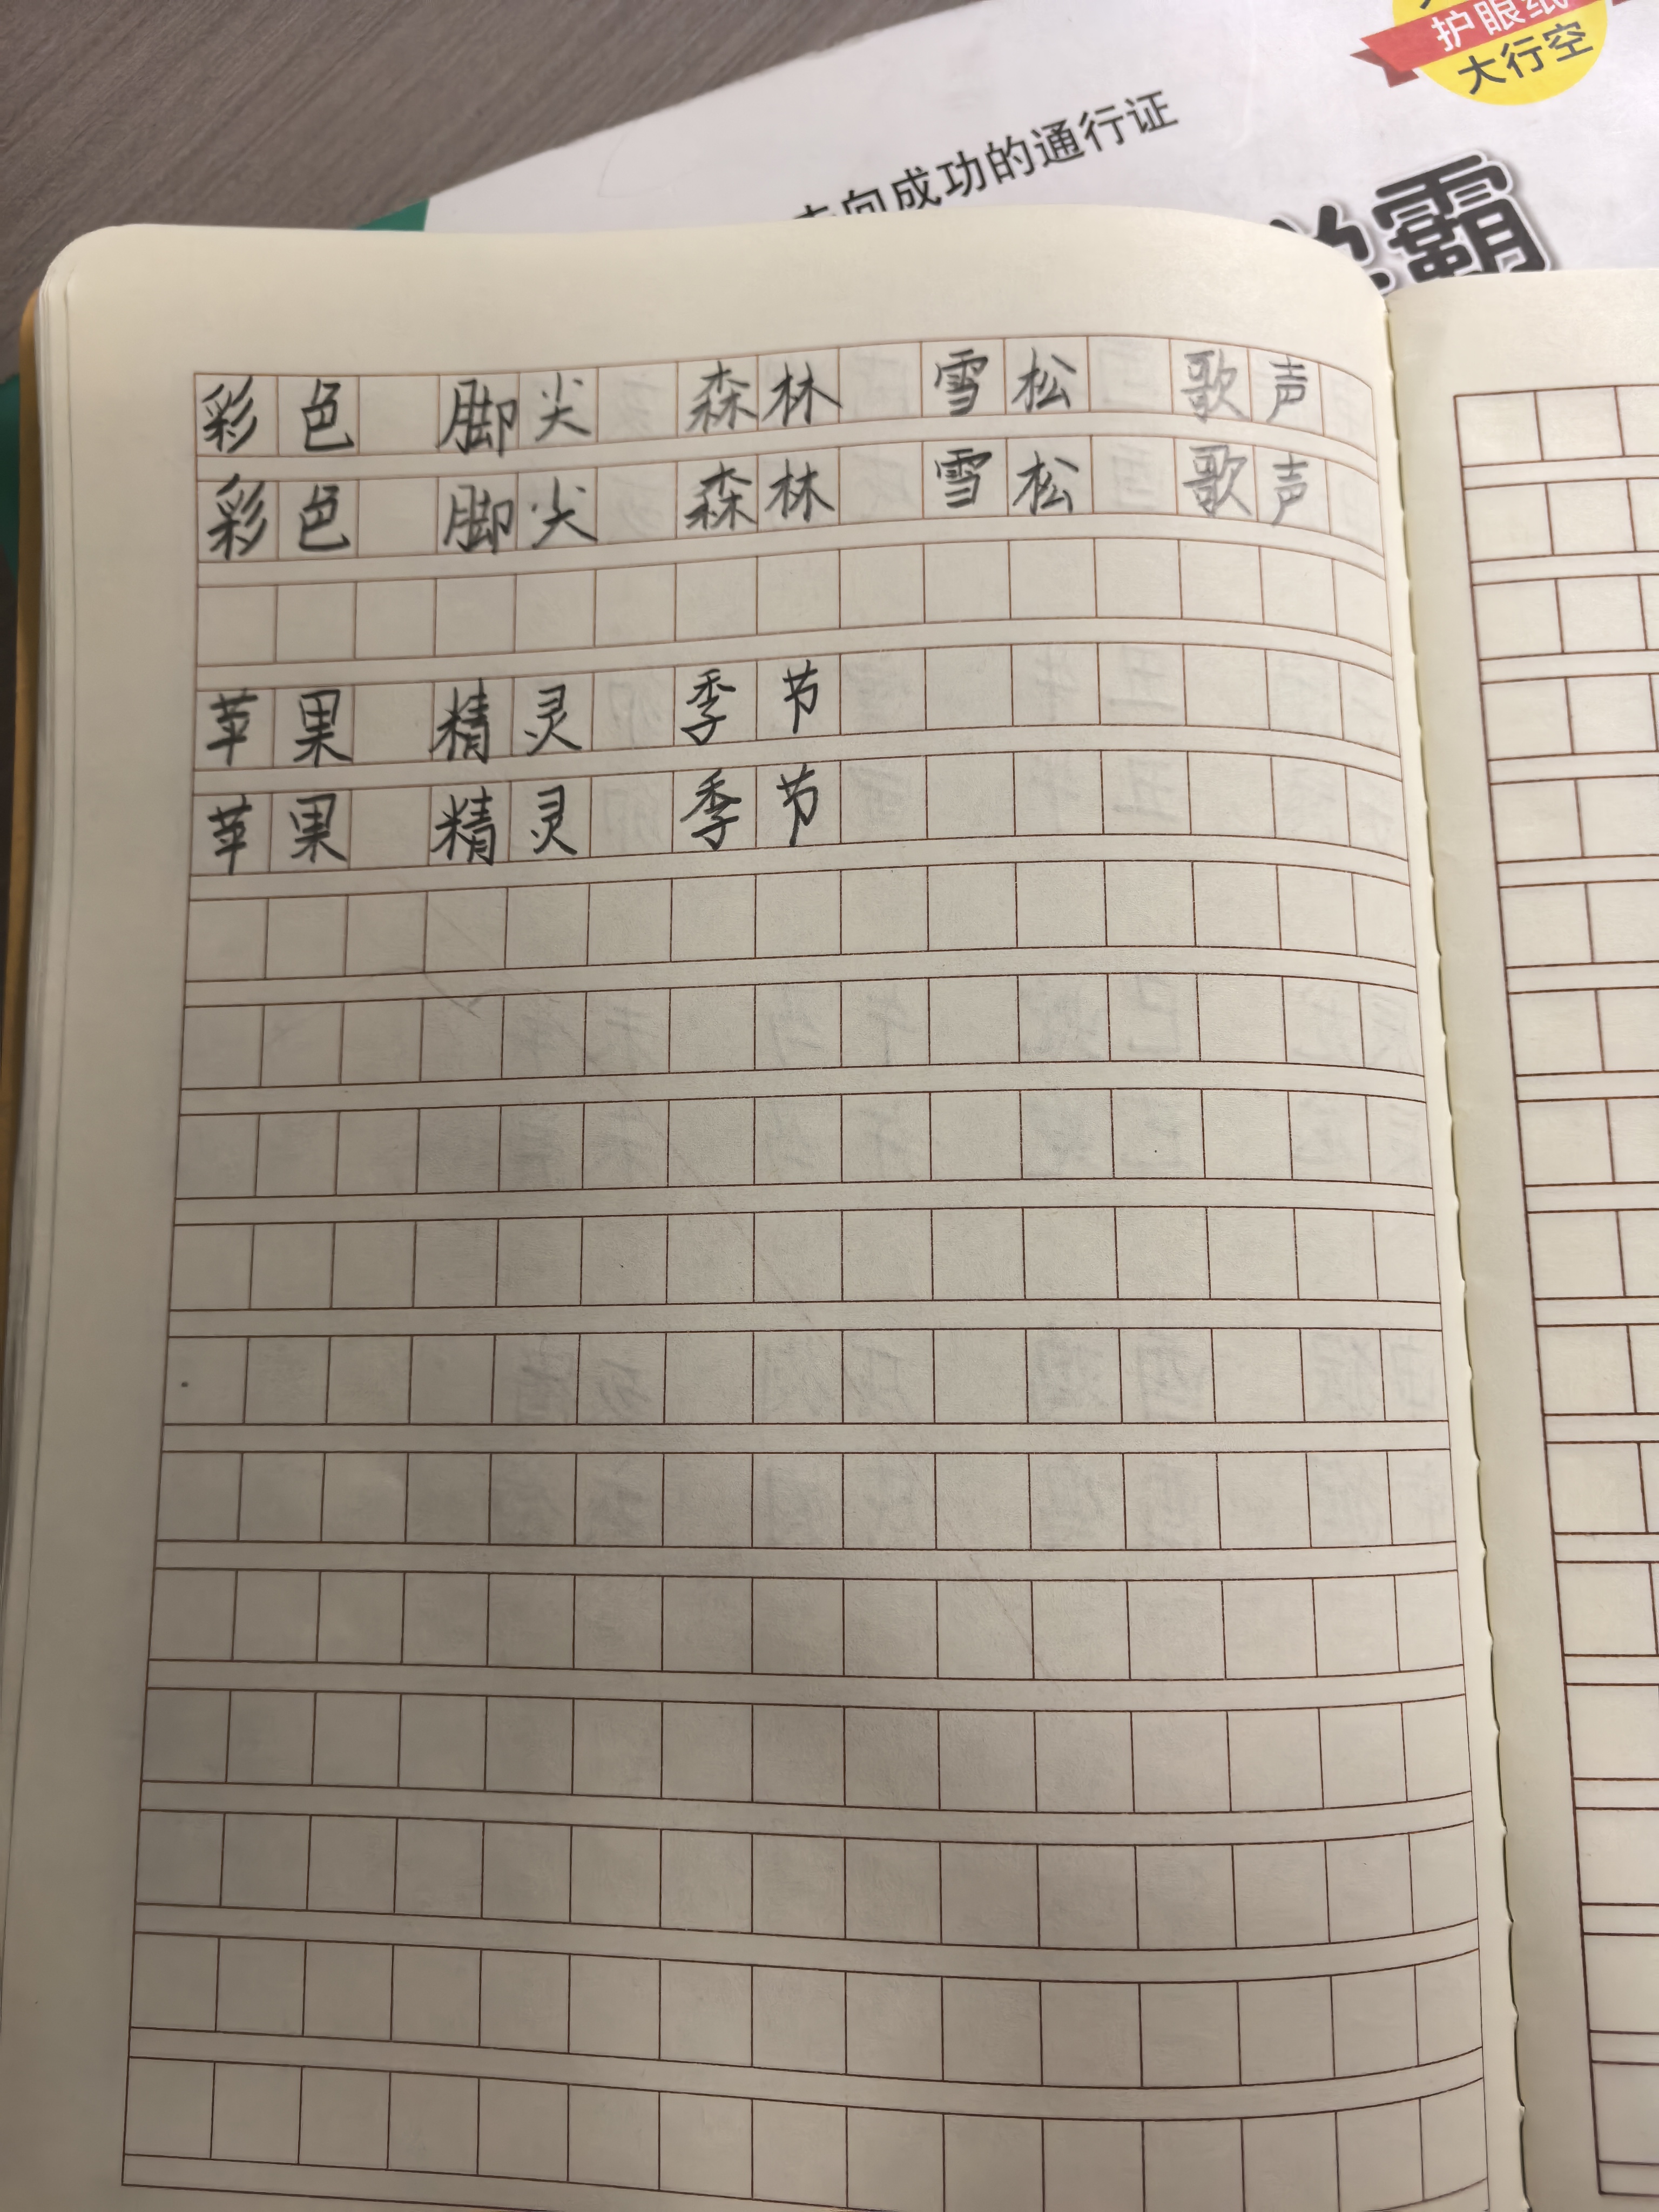 护眼纸
大行空
走向成功的通行证
学霸
彩色 脚尖 森林 雪松 歌声
彩色 脚尖 森林 雪松 歌声
苹果 精灵 季节
苹果 精灵 季节